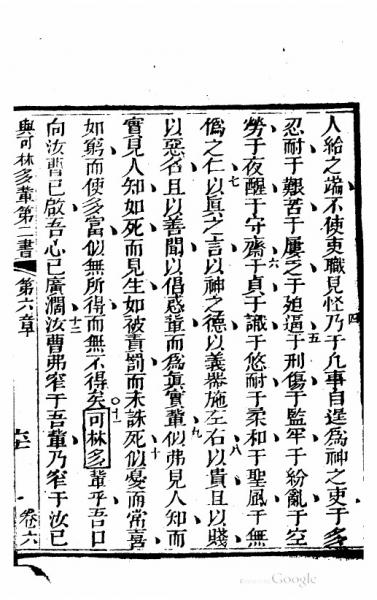 人給之端不使吏職見怪乃于凡事自逞為神之吏于多
忍耐于艱苦于屢乏于廹逼于刑傷于監牢于紛亂于空
勞于夜醒于守齋于貞于識于悠耐于柔和于聖風于無
偽之仁以真之言以神之德以義器施左右以貴且以賤
以惡名且以善聞以似惑輩而為真實輩似弗見人知而
實見人知如死而見生如被責罰而未誅死似憂而常喜
如窮而使多富似無所得而無不得矣可林多輩乎吾口
向汝曹已啟吾心已廣濶汝曹弗窄于吾輩乃窄于汝已
與可林多輩第二書
第六章
卷六
四
五
六
七
八
九
十
十一
十二
Google